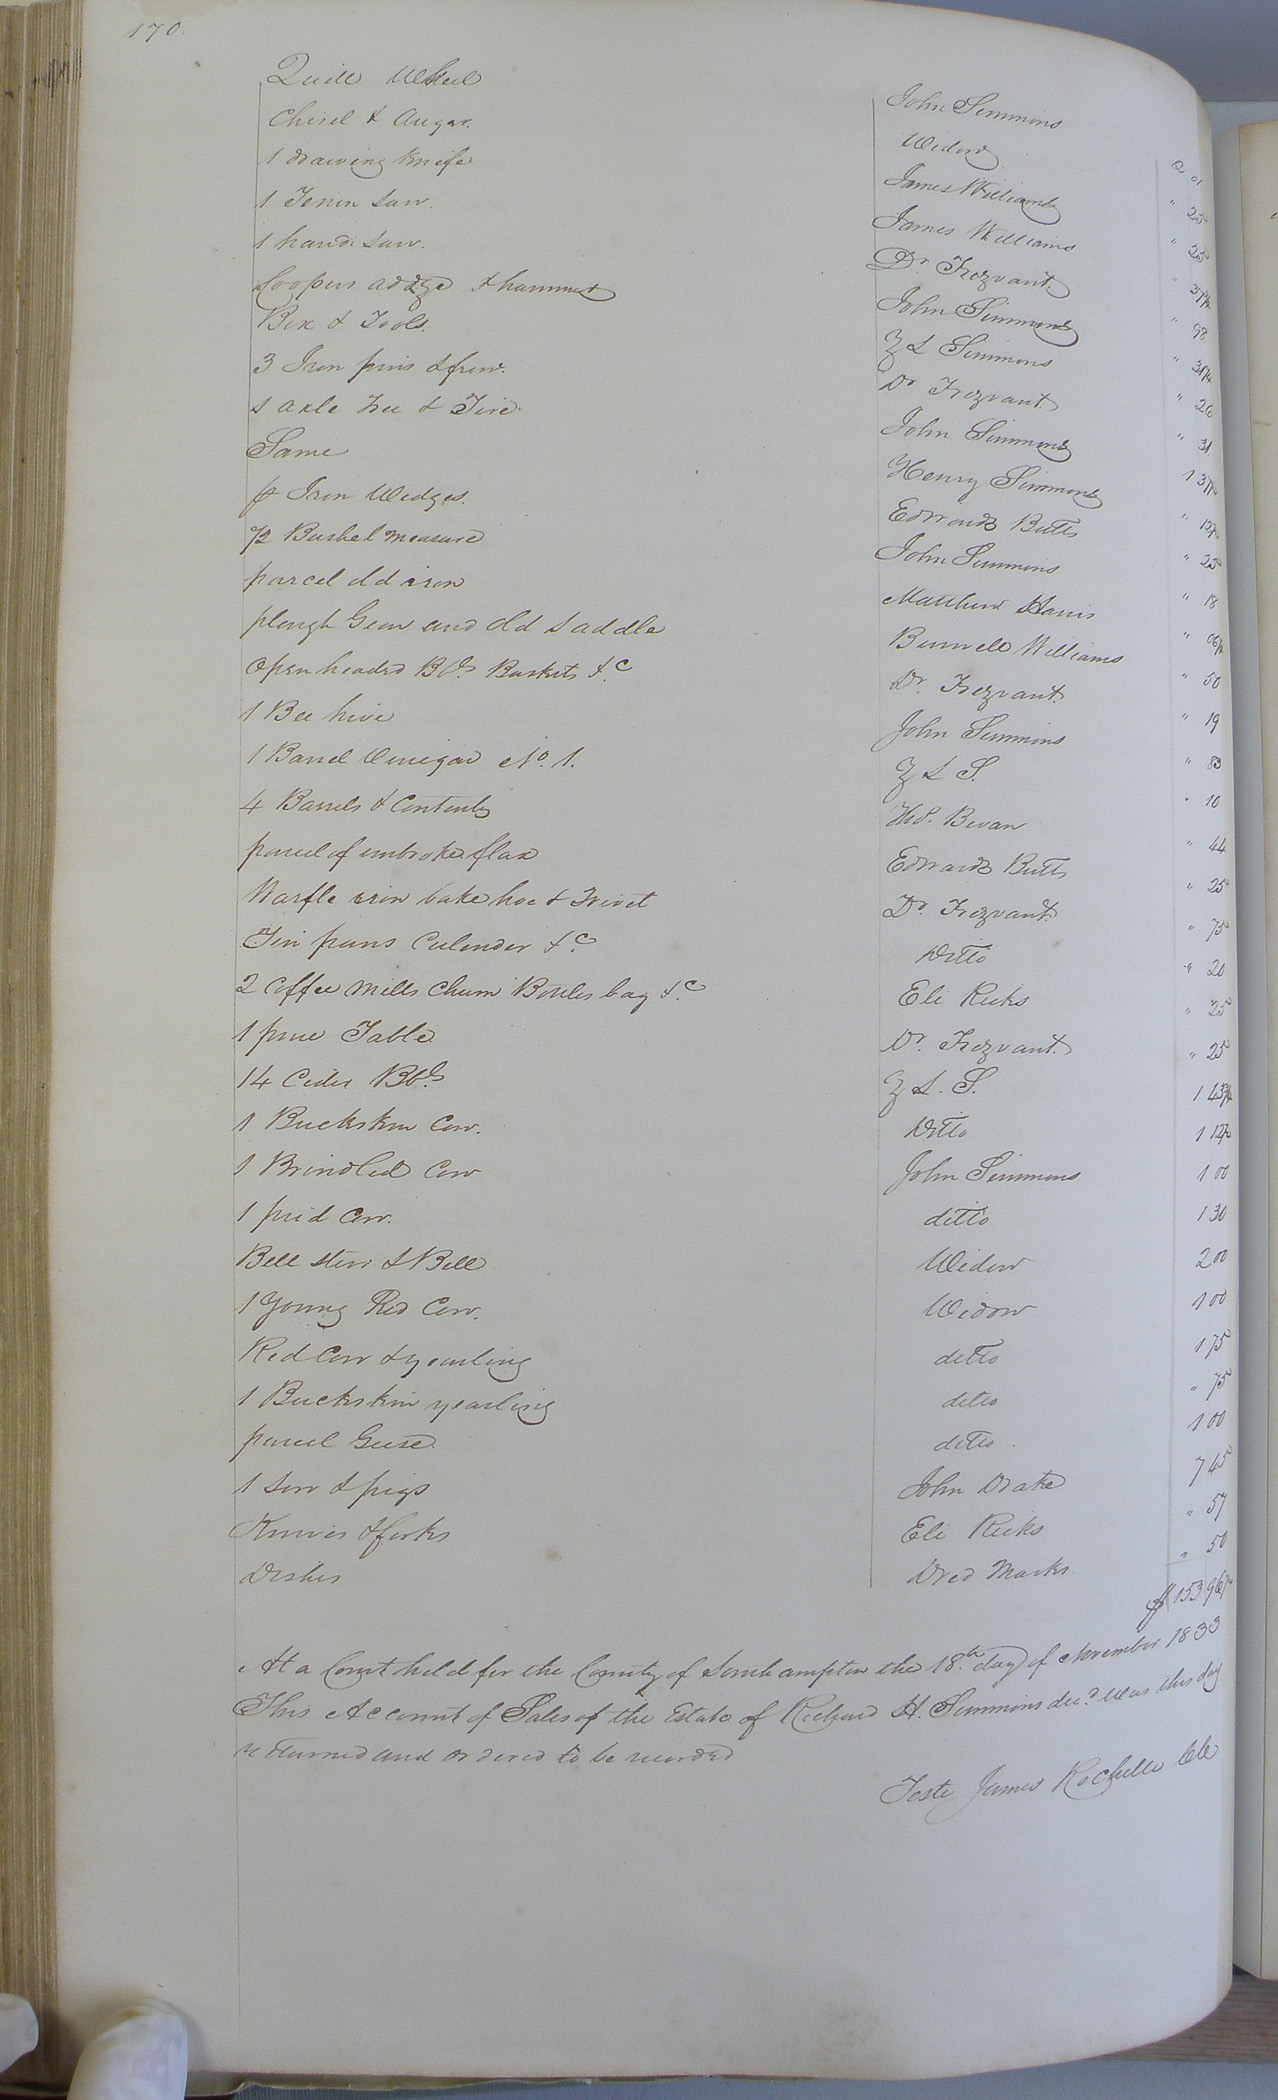 170.
Quill Wheel John Simmons
Chisel & Augar. Widow 25
1 drawing Knife James Williams 25
1 Tenin Saw. James Williams 37½
1 hand Saw. Dr Trezvant. 98
Coopers addze & hammer John Simmons 31¼
Box & Tools. Z L Simmons 26
3 Iron pins & frow. Dr Trezvant 31
1 axle tree & Tire. John Simmons 1 37½
Same Henry Simmons 12½
pr Iron Wedges. Edward Butts 25
½ Bushel measure John Simmons 18
parcel old iron Matthew Harris 06¼
plough Gear and old Saddle Burwell Williams 50
Open headed Bbls Baskets &c Dr. Trezvant 19
1 Bee hive John Simmons 80
1 Barrel Vinigar No. 1. Z L S. 10
4 Barrels & Contents Bevan 44
parcel of unbroke flax Edward Butts 25
Warfle iron bake hoe & Trivet Dr. Trezvant 75
Tin pans Culender &c Ditto 20
2 Coffee Mills Churn Bottles bag &c Eli Ricks 25
1 pine Table Dr. Trezvant. 25
14 Cider Bbls Z L. S. 1 43¾
1 Buckskin Cow. Ditto 1 12½
1 Brindled Cow John Simmons 1 00
1 pied Cow. ditto 1 30
Bell steer & Bell Widow 2 00
1 Young Red Cow. Widow 1 00
Red Cow & yearling ditto 1 75
1 Buckskin yearling ditto 75
parcel Geese ditto. 1 00
1 Sow & pigs John Drake 7 45
Knives & forks Eli Ricks 57
Dishes Dred Marks 50
$153 96
At a Court held for the County of Southampton the 18th day of November 1833
This Account of Sales of the Estate of Richard H. Simmons decd. was this day
returned and ordered to be recorded
Teste James Rochelle Clk